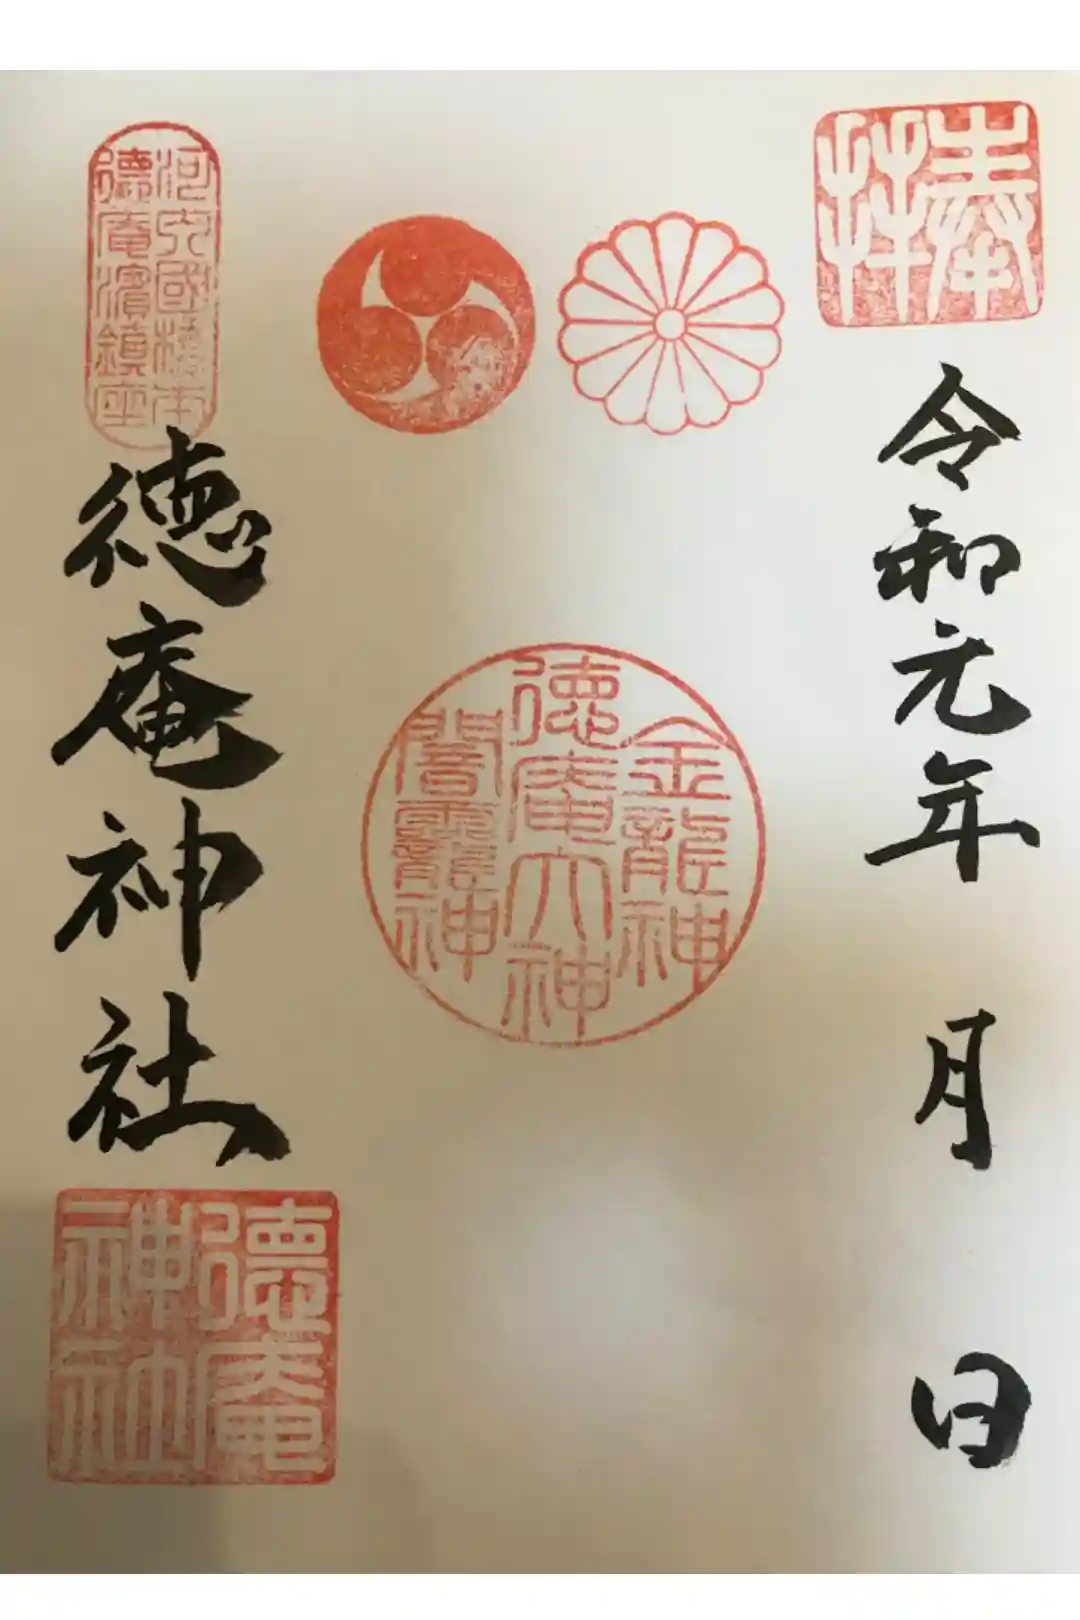 奉拝
令和元年 月 日
金龍神
徳庵大神
闇龗神
河内國橋本
徳庵濱鎮座
徳庵神社
徳庵神社